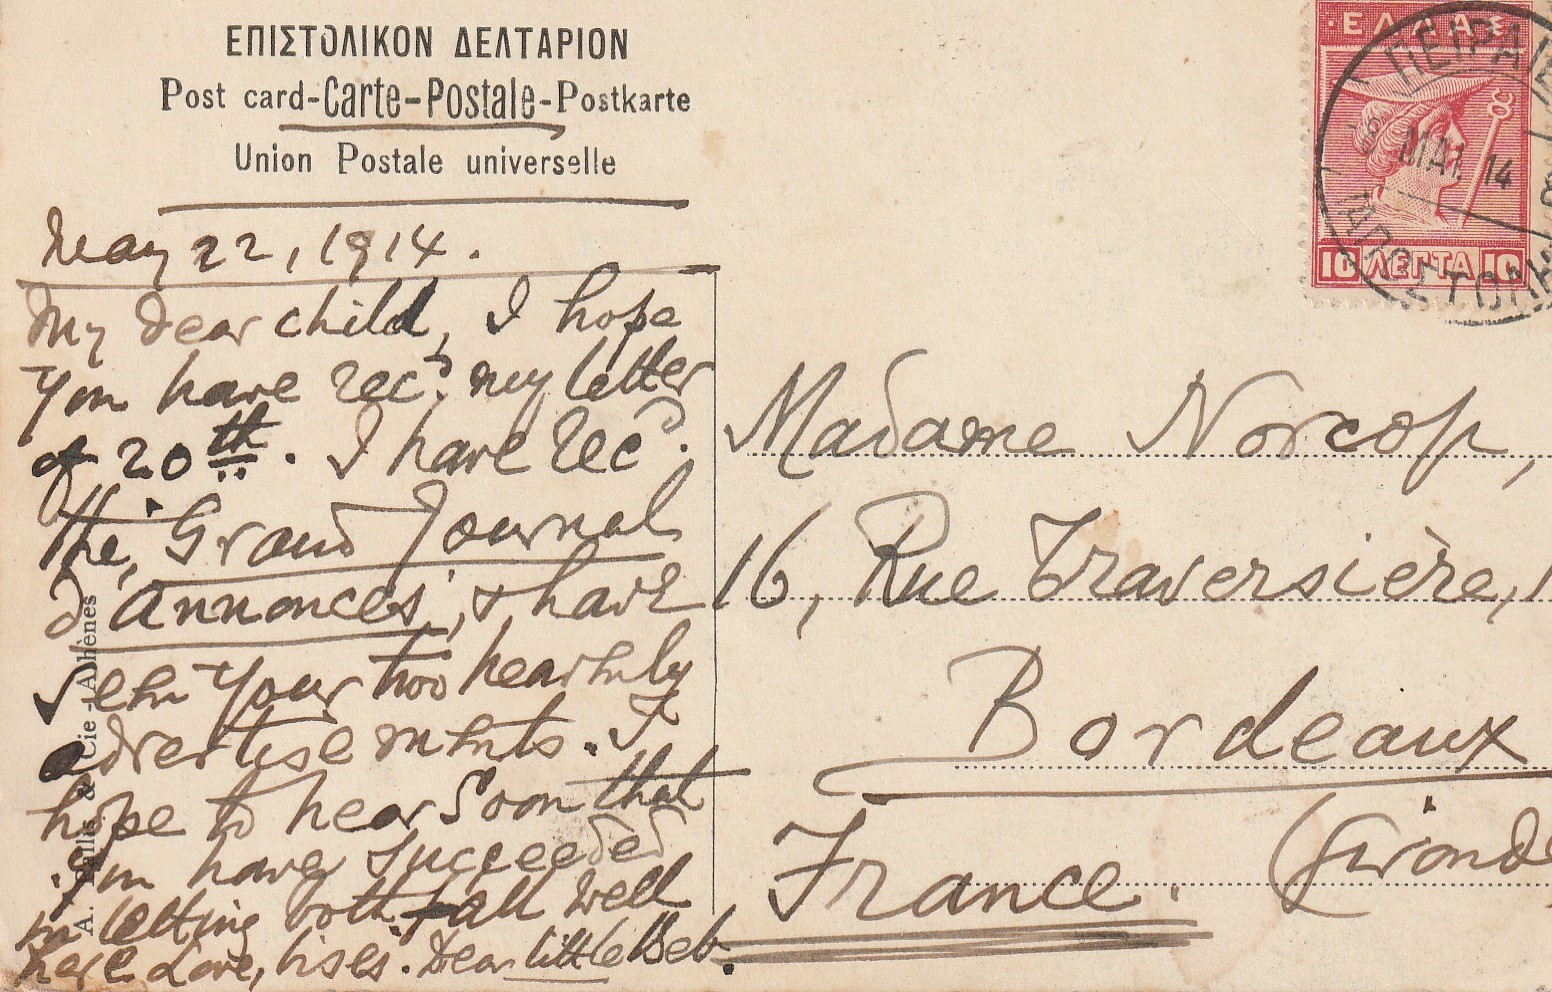 ΕΠΙΣΤΟΛΙΚΟΝ ΔΕΛΤΑΡΙΟΝ
Post card-Carte-Postale-Postkarte
Union Postale universelle
ΕΛΛΑΣ
ΠΕΙΡΑΙ
MAI 14
ΑΠΟΣΤΟΛΗ
10 ΛΕΠΤΑ 10
May 22, 1914.
My dear child, I hope
you have recd. my letter
of 20th. I have recd.
the Grand Journal
d'annonces, & have
seen your two
advertisements. I
hope to hear soon that
you have succeeded
in letting both. all well
here Love, kises. Dear little Beb.
Madame Norcop,
16, Rue Traversière,
Bordeaux
France. (Gironde
A. Pallis & Cie - Athènes